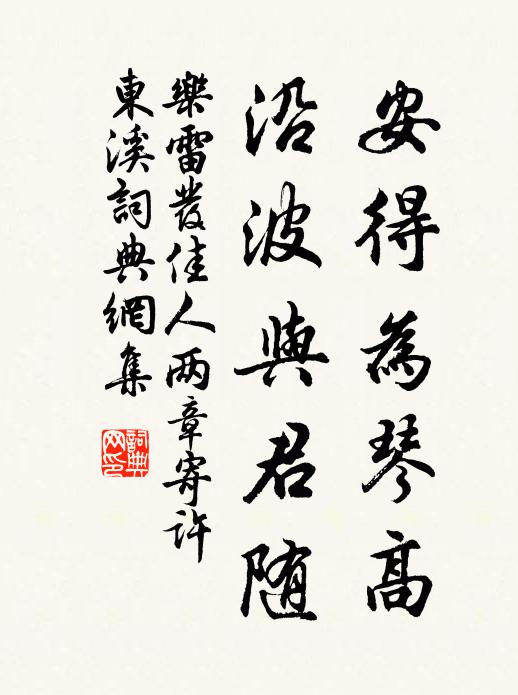 安得為琴高
沿波與君随
樂雷發佳人两章寄許
東溪詞典網集
詞典
网印